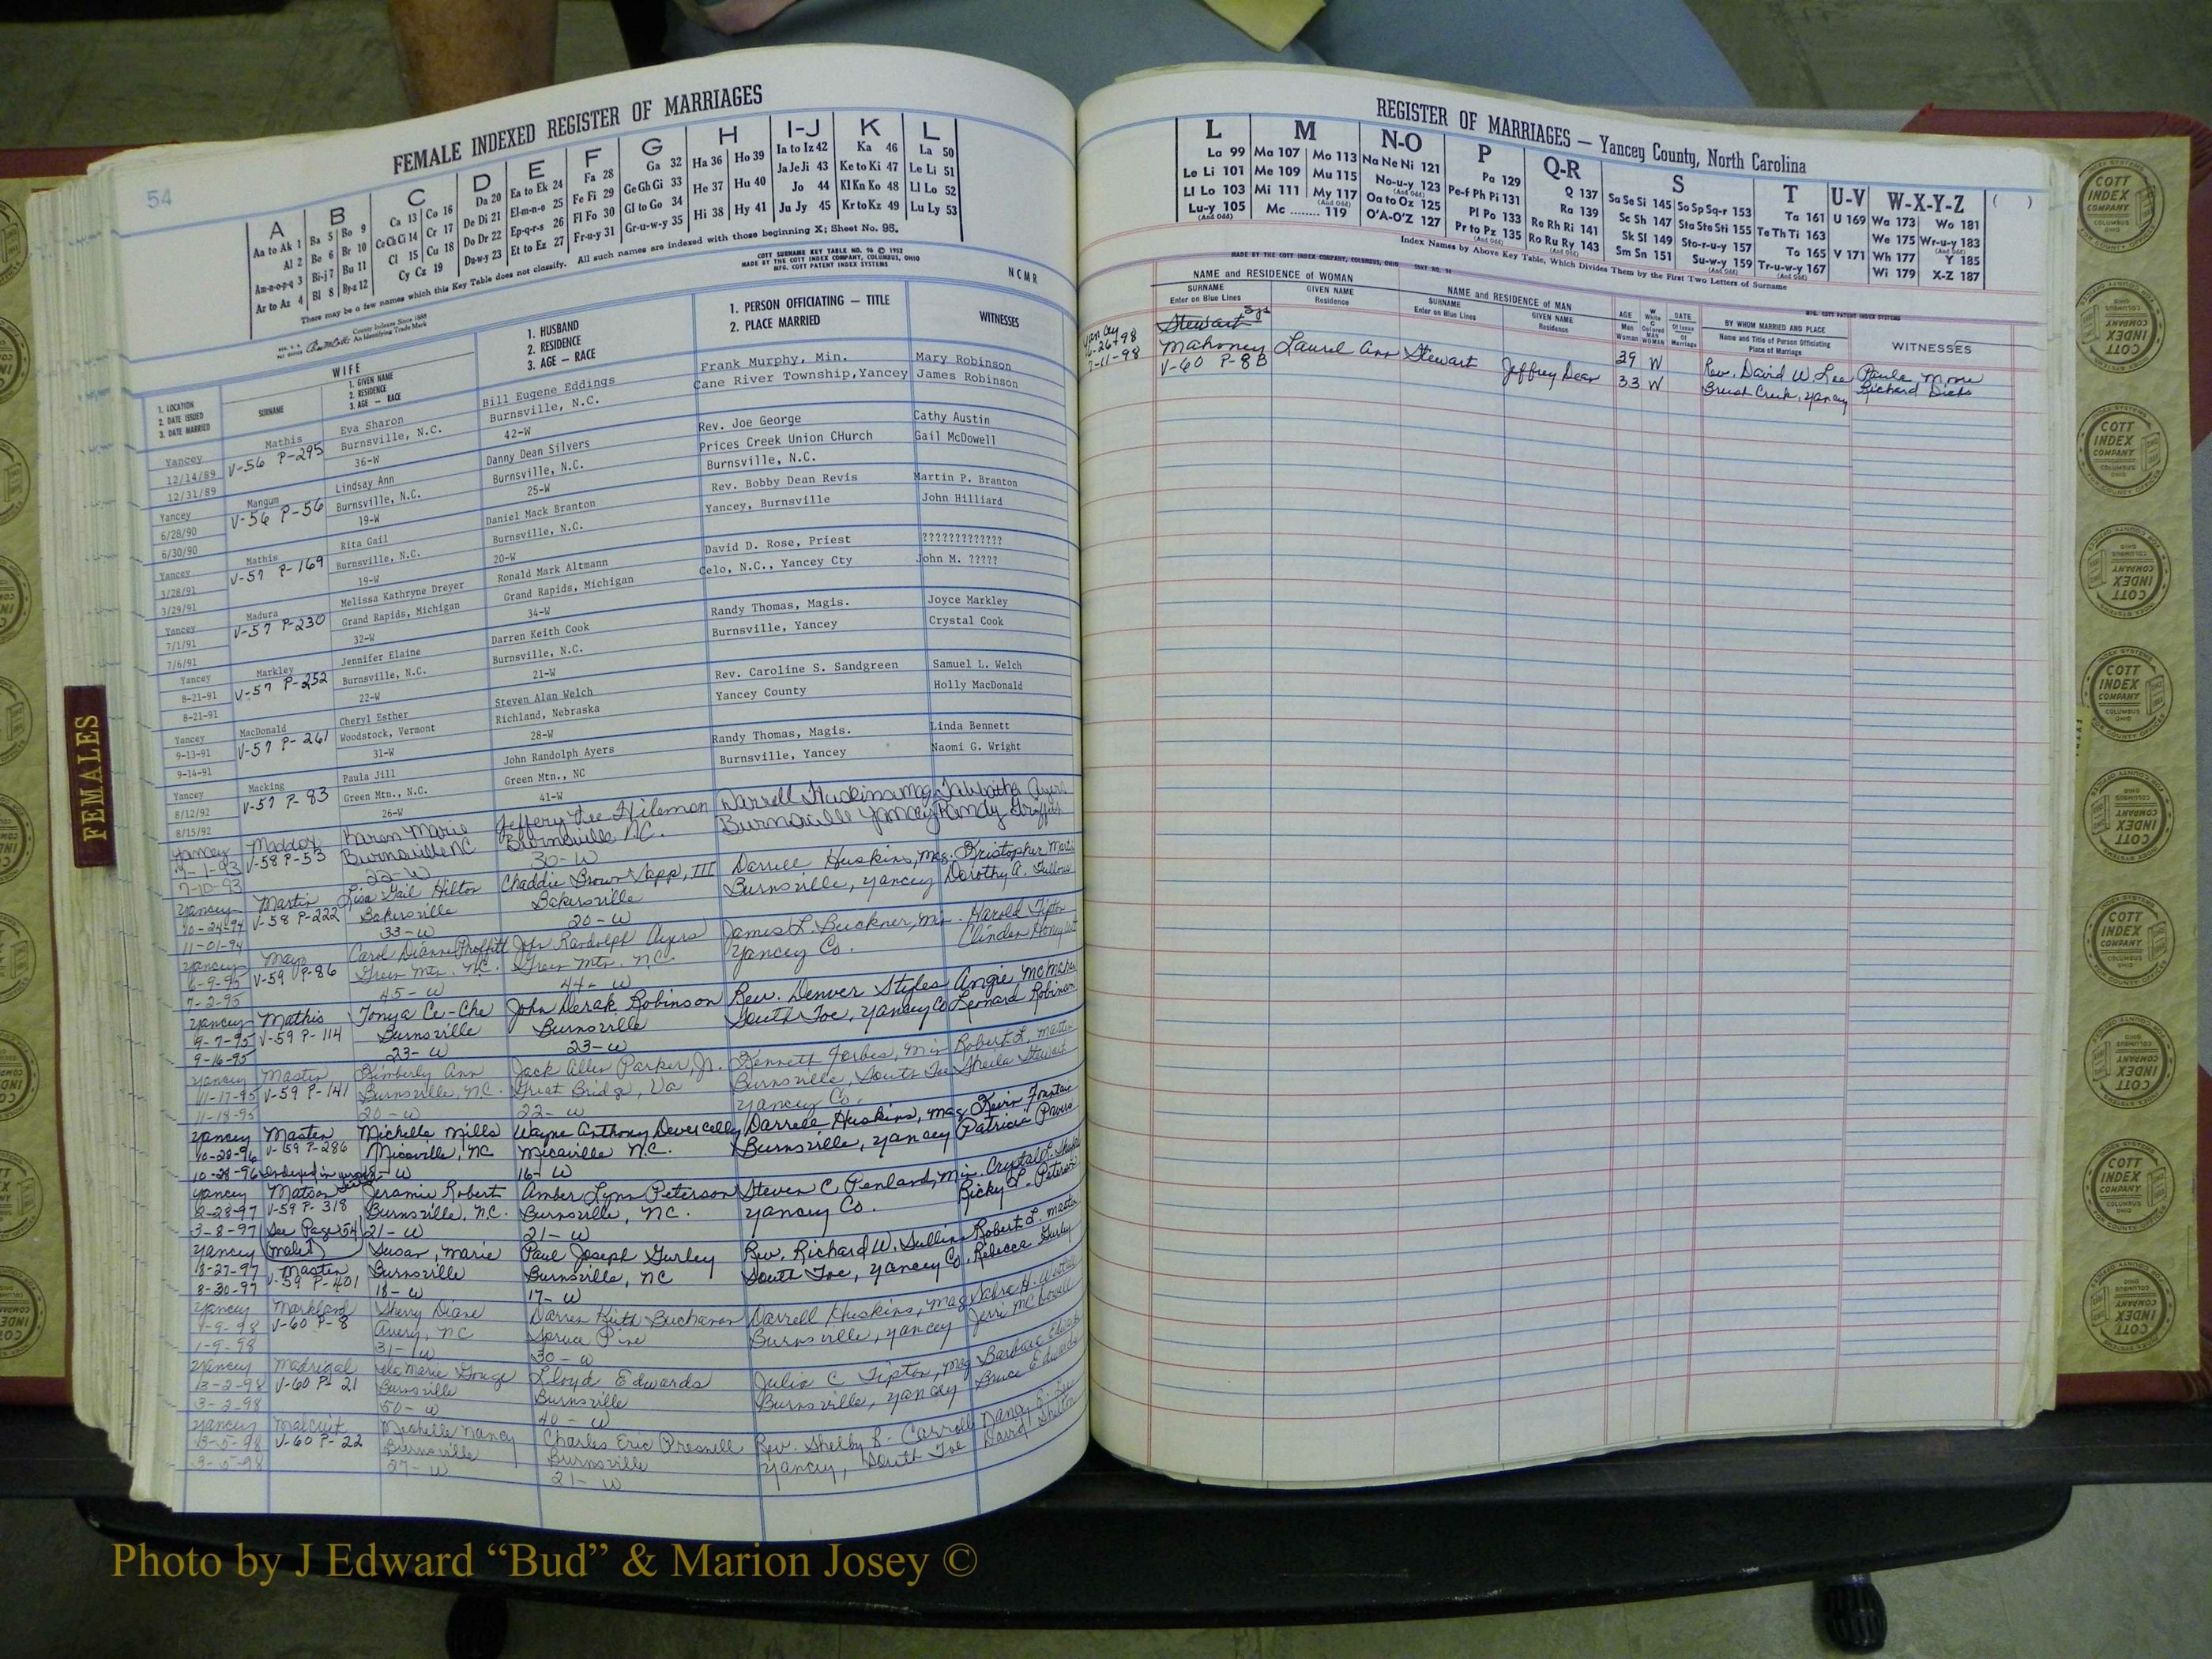 54
FEMALE INDEXED REGISTER OF MARRIAGES
A
Aa to Ak 1
Al 2
Am-n-o-p-q 3
Ar to Az 4
B
Ba 5 Bo 9
Be 6 Br 10
Bi-j 7 Bu 11
Bl 8 By-z 12
C
Ca 13 Co 16
Ce Ch Ci 14 Cr 17
Cl 15 Cu 18
Cy Cz 19
D
Da 20
De Di 21
Do Dr 22
Du-w-y 23
E
Ea to Ek 24
El-m-n-o 25
Ep-q-r-s 26
Et to Ez 27
F
Fa 28
Fe Fi 29
Fl Fo 30
Fr-u-y 31
G
Ga 32
Ge Gh Gi 33
Gl to Go 34
Gr-u-w-y 35
H
Ha 36 Ho 39
He 37 Hu 40
Hi 38 Hy 41
I-J
Ia to Iz 42
Ja Je Ji 43
Jo 44
Ju Jy 45
K
Ka 46
Ke to Ki 47
Kl Kn Ko 48
Kr to Kz 49
L
La 50
Le Li 51
Ll Lo 52
Lu Ly 53
There may be a few names which this Key Table does not classify. All such names are indexed with those beginning X; Sheet No. 95.
COTT SURNAME KEY TABLE NO. 96 © 1952
MADE BY THE COTT INDEX COMPANY, COLUMBUS, OHIO
MFG. COTT PATENT INDEX SYSTEMS
County Indexes Since 1888
An Identifying Trade Mark
NCMR
1. LOCATION
2. DATE ISSUED
3. DATE MARRIED
WIFE
SURNAME
1. GIVEN NAME
2. RESIDENCE
3. AGE — RACE
1. HUSBAND
2. RESIDENCE
3. AGE — RACE
1. PERSON OFFICIATING — TITLE
2. PLACE MARRIED
WITNESSES
Yancey Mathis Eva Sharon Bill Eugene Eddings Frank Murphy, Min. Mary Robinson
12/14/89 V-56 P-295 Burnsville, N.C. Burnsville, N.C. Cane River Township, Yancey James Robinson
12/31/89 36-W 42-W
Yancey Mangum Lindsay Ann Danny Dean Silvers Rev. Joe George Cathy Austin
6/28/90 V-56 P-56 Burnsville, N.C. Burnsville, N.C. Prices Creek Union CHurch Gail McDowell
6/30/90 19-W 25-W Burnsville, N.C.
Yancey Mathis Rita Gail Daniel Mack Branton Rev. Bobby Dean Revis Martin P. Branton
3/28/91 V-57 P-169 Burnsville, N.C. Burnsville, N.C. Yancey, Burnsville John Hilliard
3/29/91 19-W 20-W
Yancey Madura Melissa Kathryne Dreyer Ronald Mark Altmann David D. Rose, Priest ?????????????
7/1/91 V-57 P-230 Grand Rapids, Michigan Grand Rapids, Michigan Celo, N.C., Yancey Cty John M. ?????
7/6/91 32-W 34-W
Yancey Markley Jennifer Elaine Darren Keith Cook Randy Thomas, Magis. Joyce Markley
8-21-91 V-57 P-252 Burnsville, N.C. Burnsville, N.C. Burnsville, Yancey Crystal Cook
8-21-91 22-W 21-W
Yancey MacDonald Cheryl Esther Steven Alan Welch Rev. Caroline S. Sandgreen Samuel L. Welch
9-13-91 V-57 P-261 Woodstock, Vermont Richland, Nebraska Yancey County Holly MacDonald
9-14-91 31-W 28-W
Yancey Macking Paula Jill John Randolph Ayers Randy Thomas, Magis. Linda Bennett
8/12/92 V-57 P-83 Green Mtn., N.C. Green Mtn., NC Burnsville, Yancey Naomi G. Wright
8/15/92 26-W 41-W
Yancey Maddox Karen Marie Jeffery Lee Hileman Darrell Huskins Mag Tabbatha Ayers
7-1-93 V-58 P-53 Burnsville NC Burnsville N.C. Burnsville Yancey Randy
7-10-93 22-W 30-W
Yancey Martin Lisa Gail Hilton Chaddie Brown Sapp, III Darrell Huskins, Mag. Kristopher Martin
10-24-94 V-58 P-222 Bakersville Bakersville Burnsville, Yancey Dorothy A.
11-01-94 33-W 20-W
Yancey Mays Carol Dianne Proffitt John Randolph Ayers James L. Buckner, Min. Harold Tipton
6-9-95 V-59 P-86 Green Mtn. N.C. Green Mtn. N.C. Yancey Co.
7-2-95 45-W 44-W
Yancey Mathis Tonya Ce-Che John Derak Robinson Rev. Denver Styles Angie McMahan
9-7-95 V-59 P-114 Burnsville Burnsville South Toe, Yancey Co Leonard Robinson
9-16-95 23-W 23-W
Yancey Masten Kimberly Ann Jack Allen Parker, Jr. Kenneth Forbes, Min Robert L. Masten
11-17-95 V-59 P-141 Burnsville, N.C. Great Bridge, Va Burnsville, South Toe Sheila Stewart
11-18-95 20-W 22-W Yancey Co.
Yancey Masten Michelle Mills Wayne Anthony Darrell Huskins, Mag Kevin
10-28-96 V-59 P-286 Micaville, NC Micaville N.C. Burnsville, Yancey Patricia
10-28-96 W 16-W
Yancey Matson Jeramie Robert Amber Lynn Peterson Steven C. Penland, Min. Crystal L.
2-28-97 V-59 P-318 Burnsville, N.C. Burnsville, NC. Yancey Co. Ricky L. Peterson
3-8-97 See Page 54 21-W 21-W
(Male)
Yancey Masten Susan Marie Paul Joseph Gurley Rev. Richard W. Sullins Robert L. Masten
8-27-97 V-59 P-401 Burnsville Burnsville, NC South Toe, Yancey Co. Rebecca Gurley
8-30-97 18-W 17-W
Yancey Markland Sherry Diane Darren Keith Buchanan Darrell Huskins, Mag
1-9-98 V-60 P-8 Avery, NC Spruce Pine Burnsville, Yancey Jerri
1-9-98 31-W 30-W
Yancey Madrigal Marie Gouge Lloyd Edwards Julia C Tipton, Mag Barbara Edwards
3-2-98 V-60 P-21 Burnsville Burnsville Burnsville, Yancey Bruce Edwards
3-2-98 50-W 40-W
Yancey Michelle Nancy Charles Eric Presnell Rev. Shelby R. Carroll Nancy
3-5-98 V-60 P-22 Burnsville Burnsville Yancey, South Toe David Shelton
3-5-98 27-W 21-W
FEMALES
REGISTER OF MARRIAGES — Yancey County, North Carolina
L
La 99
Le Li 101
Ll Lo 103
Lu-y 105
(And Odd)
M
Ma 107 Mo 113
Me 109 Mu 115
Mi 111 My 117
(And Odd)
Mc ........ 119
N-O
Na Ne Ni 121
No-u-y 123
(And Odd)
Oa to Oz 125
O'A-O'Z 127
P
Pa 129
Pe-f Ph Pi 131
Pl Po 133
Pr to Pz 135
(And Odd)
Q-R
Q 137
Ra 139
Re Rh Ri 141
Ro Ru Ry 143
(And Odd)
S
Sa Se Si 145 So Sp Sq-r 153
Sc Sh 147 Sta Ste Sti 155
Sk Sl 149 Sto-r-u-y 157
Sm Sn 151 Su-w-y 159
(And Odd)
T
Ta 161
Te Th Ti 163
To 165
Tr-u-w-y 167
(And Odd)
U-V
U 169
V 171
W-X-Y-Z
Wa 173 Wo 181
We 175 Wr-u-y 183
(And Odd)
Wh 177 Y 185
Wi 179 X-Z 187
( )
Index Names by Above Key Table, Which Divides Them by the First Two Letters of Surname
MADE BY THE COTT INDEX COMPANY, COLUMBUS, OHIO
MFG. COTT PATENT INDEX SYSTEMS
NAME and RESIDENCE of WOMAN
SURNAME
Enter on Blue Lines
GIVEN NAME
Residence
NAME and RESIDENCE of MAN
SURNAME
Enter on Blue Lines
GIVEN NAME
Residence
AGE
Man
Woman
W
White
C
Colored
MAN
WOMAN
DATE
Of Issue
Of
Marriage
BY WHOM MARRIED AND PLACE
Name and Title of Person Officiating
Place of Marriage
WITNESSES
Stewart
Yancey Mahoney Laurel Ann Stewart Jeffrey Dean 39 W Rev. David W Lee Paula
6-26-98 V-60 P-8B 33 W Brush Creek, Yancey Richard
7-11-98
COTT
INDEX
COMPANY
COLUMBUS
OHIO
INDEX SYSTEMS
FOR COUNTY OFFICES
Photo by J Edward “Bud” & Marion Josey ©